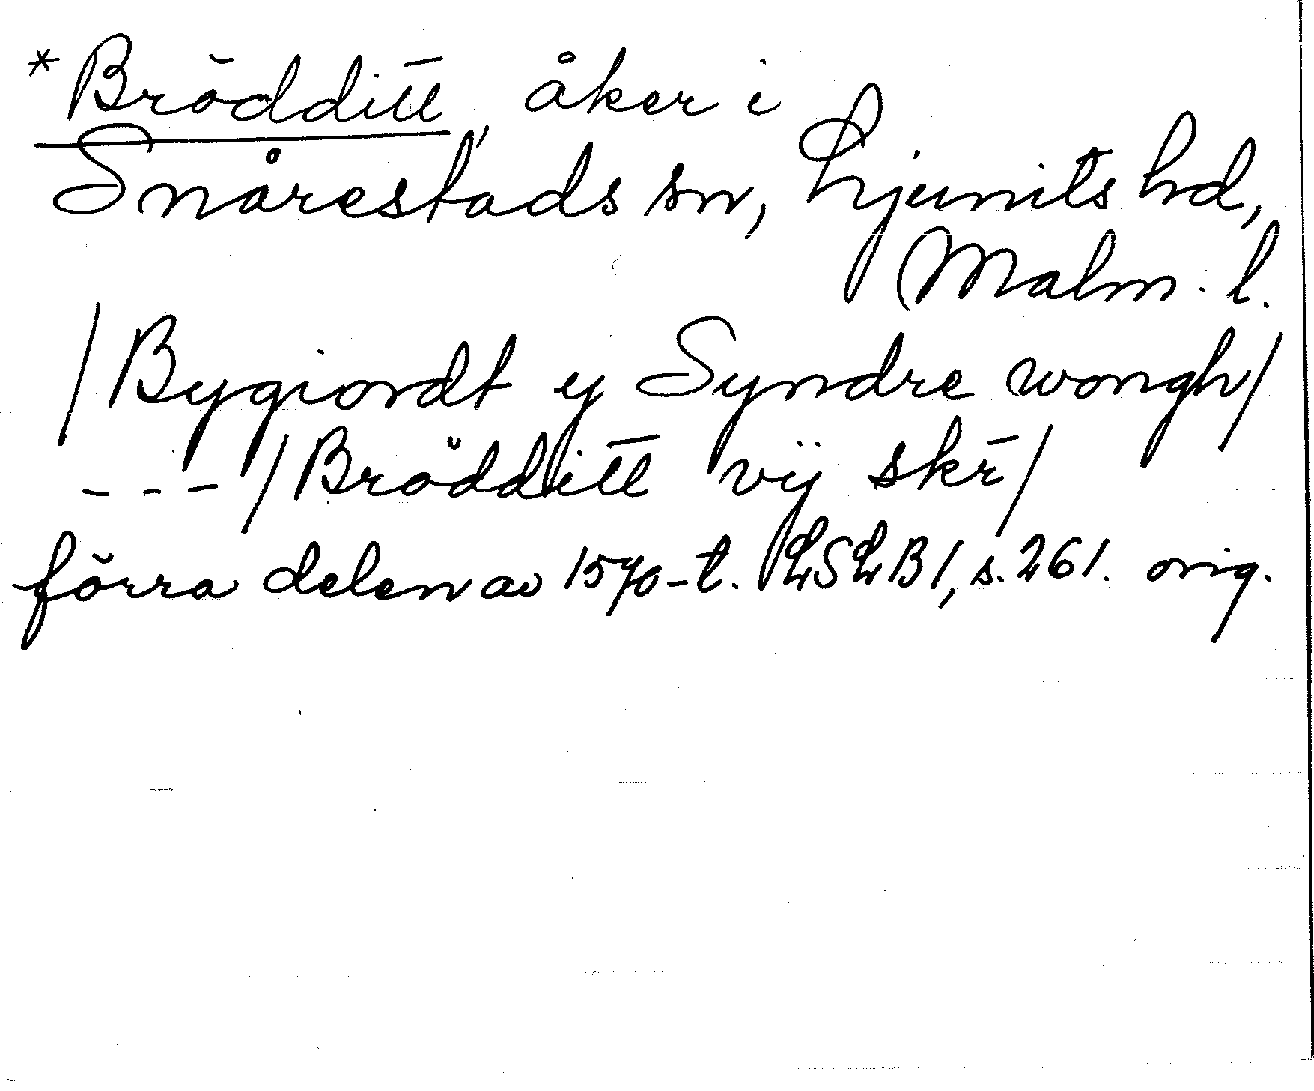 *Brödditt, åker i
Snårestads sn, Ljunits hd,
Malm. l.
/Bygiordt y Syndre wongh/
--- /Brödditt vij skr/
förra delen av 1570-t. LSLB1, s. 261. orig.